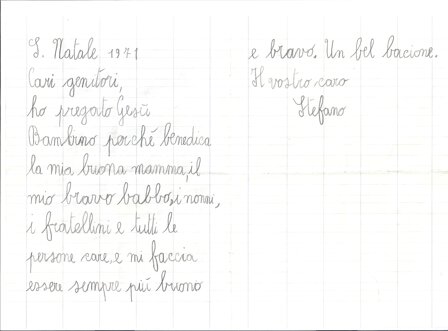 S. Natale 1971
Cari genitori,
ho pregato Gesù
Bambino perché benedica
la mia buona mamma, il
mio bravo babbo, i nonni,
i fratellini e tutti le
persone care, e mi faccia
essere sempre più buono
e bravo. Un bel bacione.
Il vostro caro
Stefano